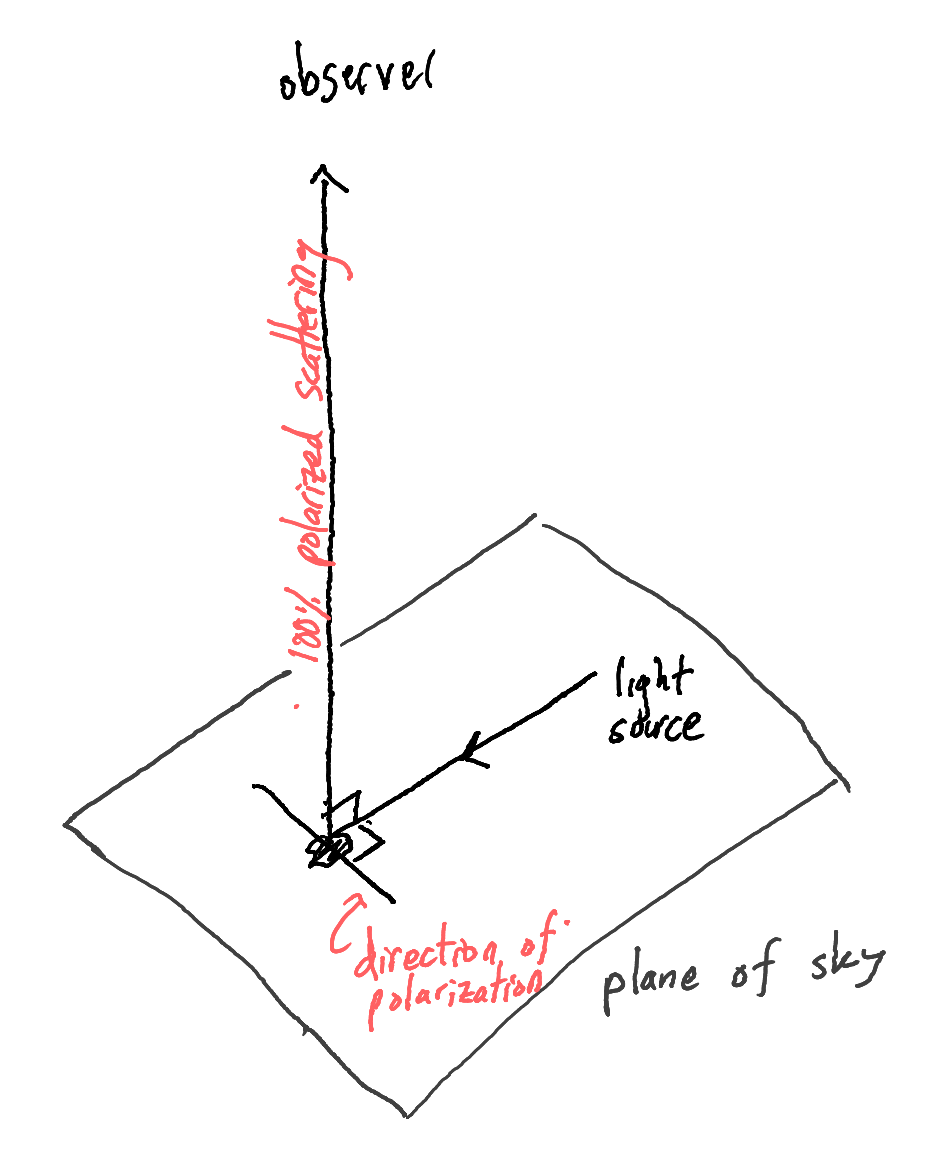 observer
100% polarized scattering
light
source
direction of
polarization
plane of sky